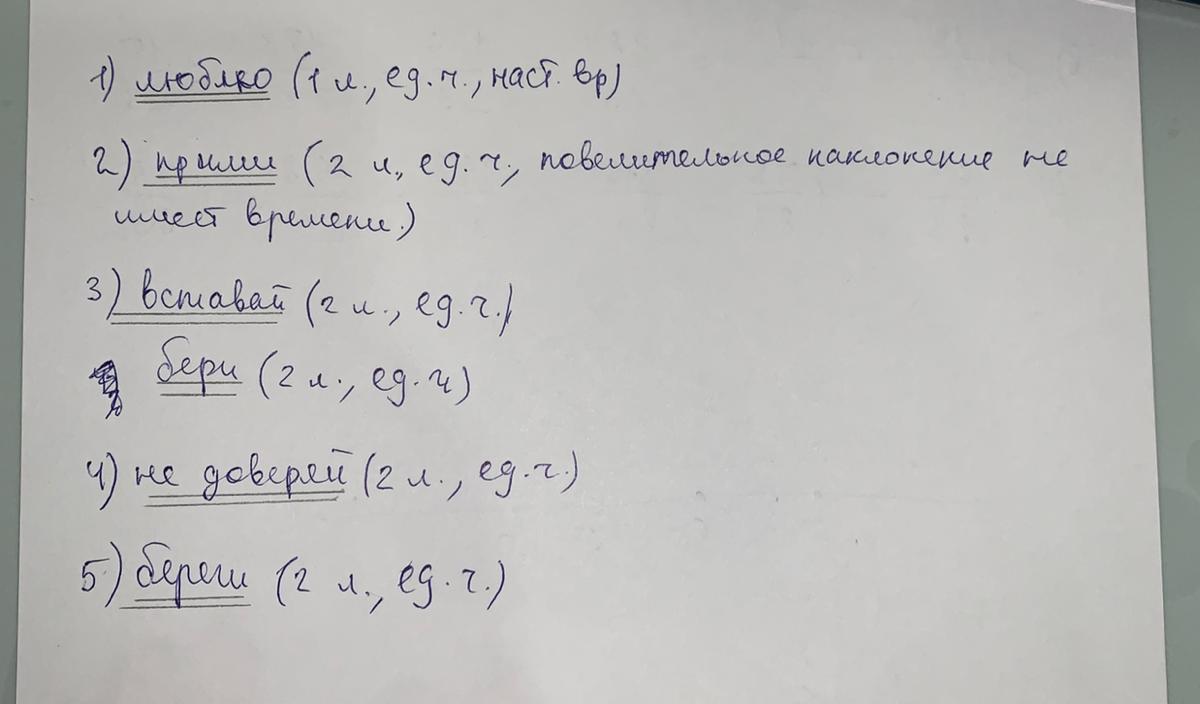 1) люблю (1 л., ед. ч., наст. вр)
2) прими (2 л., ед. ч., повелительное наклонение не
имеет времени.)
3) вставай (2 л., ед. ч.)
бери (2 л., ед. ч)
4) не доверяй (2 л., ед. ч.)
5) береги (2 л., ед. ч.)